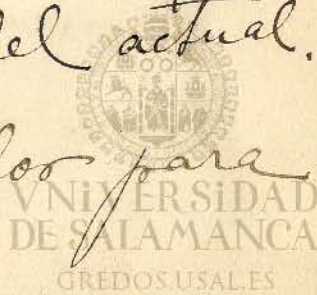 del actual.
los para
VNiVERSiDAD
DE SALAMANCA
GREDOS.USAL.ES